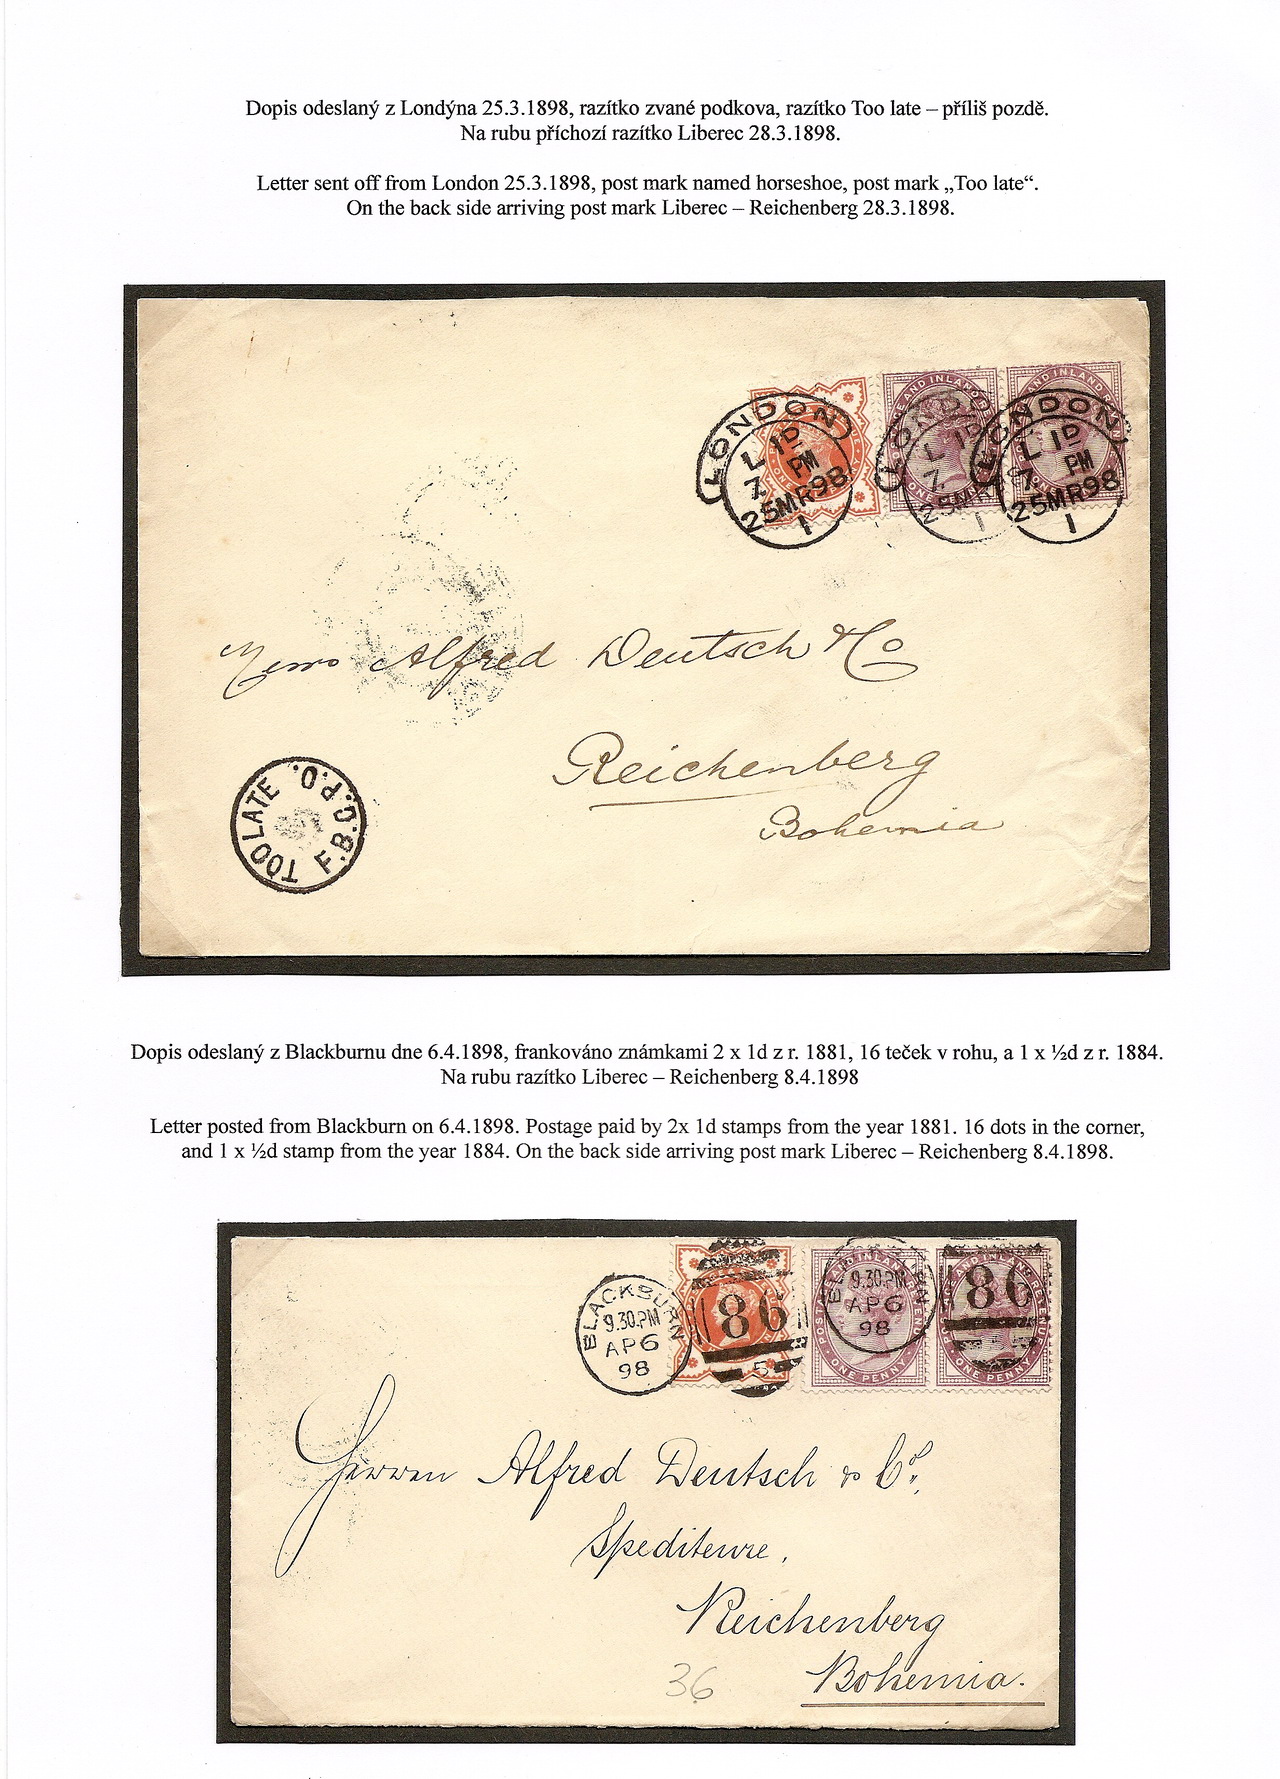 Dopis odeslaný z Londýna 25.3.1898, razítko zvané podkova, razítko Too late – příliš pozdě.
Na rubu příchozí razítko Liberec 28.3.1898.
Letter sent off from London 25.3.1898, post mark named horseshoe, post mark „Too late“.
On the back side arriving post mark Liberec – Reichenberg 28.3.1898.
LONDON
L 1D
7. PM
25MR98
1
LONDON
L 1D
7.
25MR98
1
LONDON
L 1D
7. PM
25MR98
1
AND INLAND
AND INLAND
Alfred Deutsch & Co
Reichenberg
Bohemia
TOO LATE F.B.G.P.O.
Dopis odeslaný z Blackburnu dne 6.4.1898, frankováno známkami 2 x 1d z r. 1881, 16 teček v rohu, a 1 x ½d z r. 1884.
Na rubu razítko Liberec – Reichenberg 8.4.1898
Letter posted from Blackburn on 6.4.1898. Postage paid by 2x 1d stamps from the year 1881. 16 dots in the corner,
and 1 x ½d stamp from the year 1884. On the back side arriving post mark Liberec – Reichenberg 8.4.1898.
BLACKBURN
9.30.PM
AP 6
98
86
5
9.30.PM
AP 6
98
86
POSTAGE
ONE PENNY
ONE PENNY
Herren Alfred Deutsch & Co.,
Spediteure,
Reichenberg
Bohemia.
36